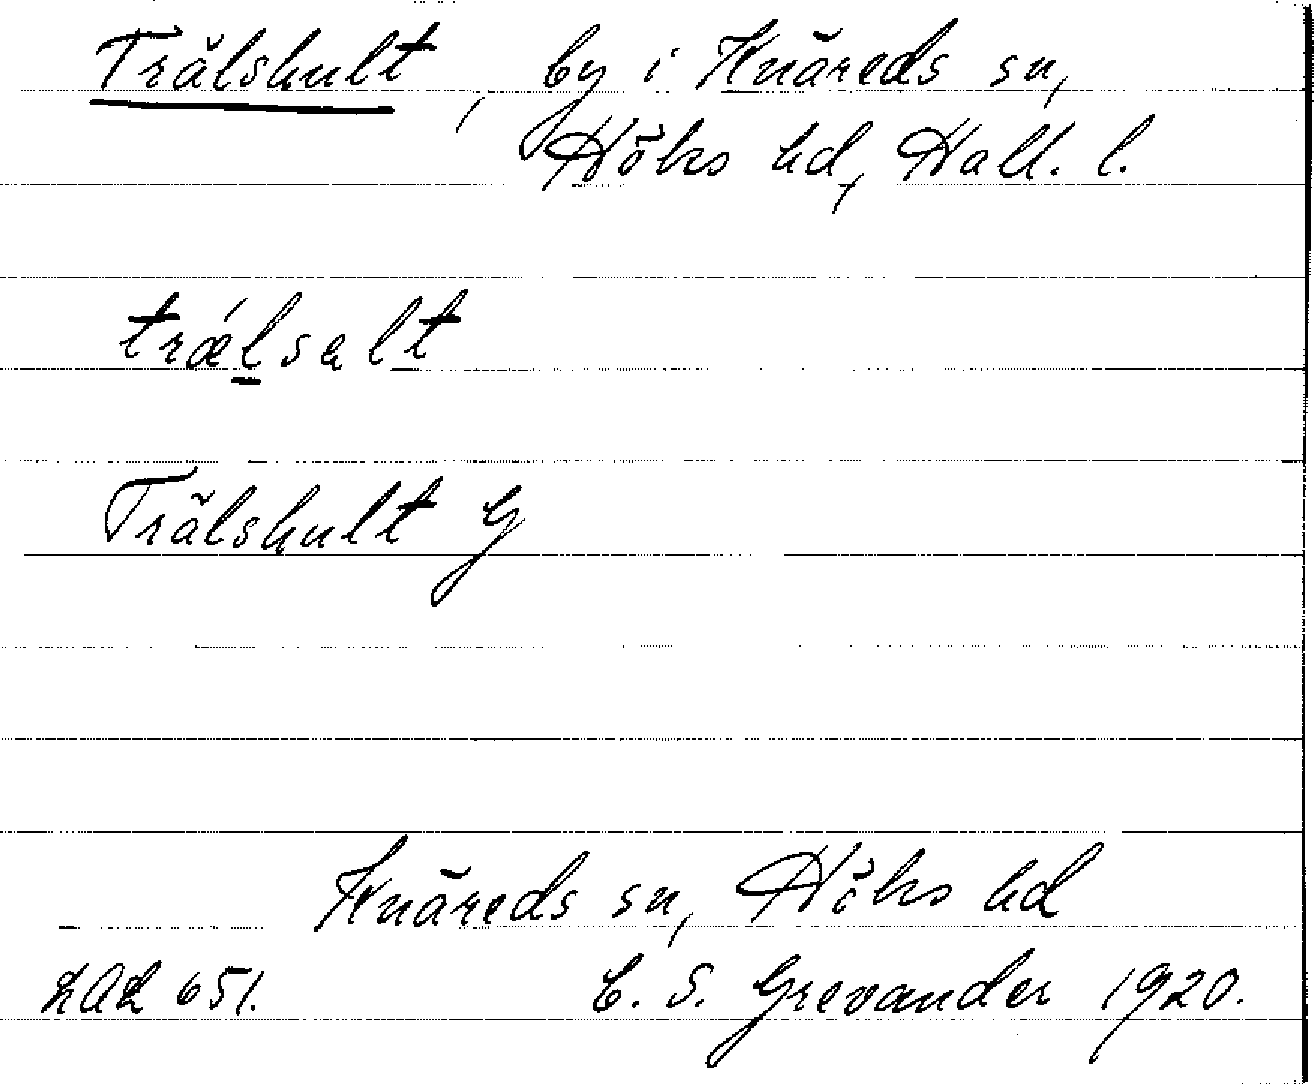 Trälshult, by i Knäreds sn,
Höks hd, Hall. l.
trǽlsalt
Trälshult G
Knäreds sn, Höks hd
LAL 651.
C. S. Grevander 1920.